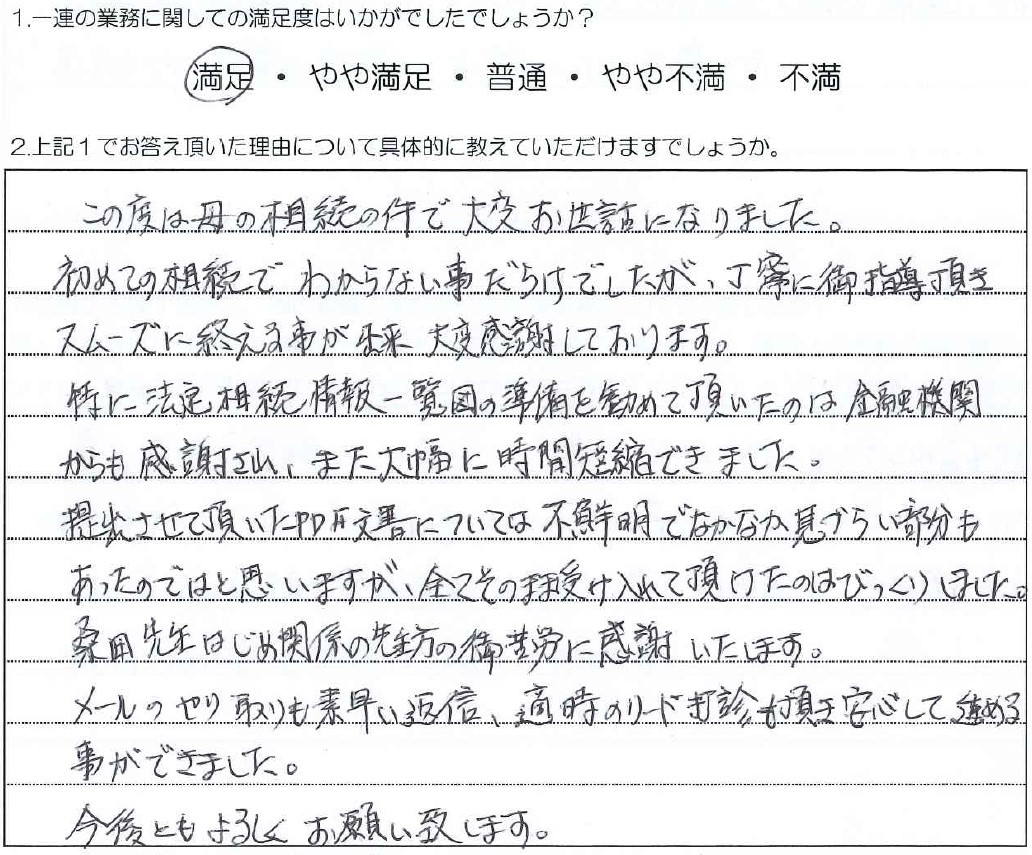 1.一連の業務に関しての満足度はいかがでしたでしょうか？
満足 ・ やや満足 ・ 普通 ・ やや不満 ・ 不満
2.上記１でお答え頂いた理由について具体的に教えていただけますでしょうか。
この度は母の相続の件で大変お世話になりました。
初めての相続でわからない事だらけでしたが、丁寧に御指導頂き
スムーズに終える事が出来大変感謝しております。
特に法定相続情報一覧図の準備を勧めて頂いたのは金融機関
からも感謝され、また大幅に時間短縮できました。
提出させて頂いたPDF文書については不鮮明でなかなか見づらい部分も
あったのではと思いますが、全てそのまま受け入れて頂けたのはびっくりしました。
桑田先生はじめ関係の先生方の御苦労に感謝いたします。
メールのやり取りも素早い返信、適時のリード打診も頂き安心して進める
事ができました。
今後ともよろしくお願い致します。